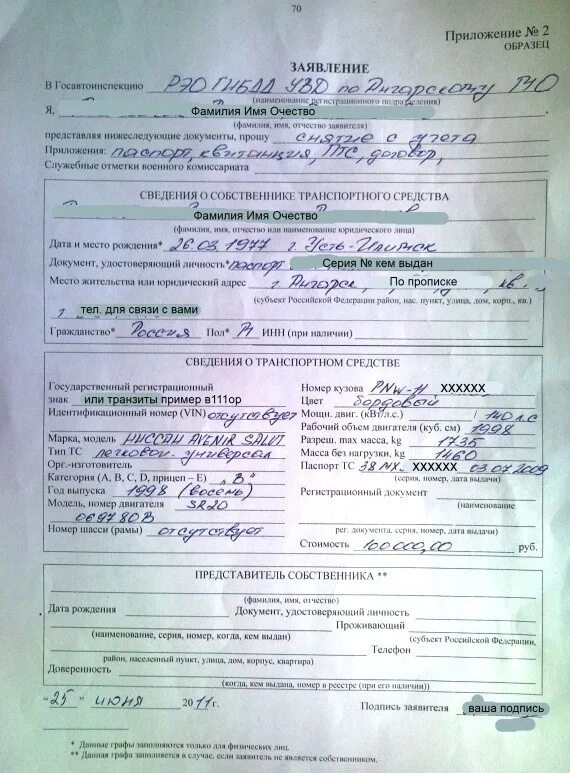 70
Приложение № 2
ОБРАЗЕЦ
ЗАЯВЛЕНИЕ
В Госавтоинспекцию РЭО ГИБДД УВД по Ангарскому
(наименование регистрационного подразделения)
Я, Фамилия Имя Очество
(фамилия, имя, отчество заявителя)
представляя нижеследующие документы, прошу снятие с учета
Приложения: паспорт, квитанция, ПТС, договор,
Служебные отметки военного комиссариата
СВЕДЕНИЯ О СОБСТВЕННИКЕ ТРАНСПОРТНОГО СРЕДСТВА
Фамилия Имя Очество
(фамилия, имя, отчество или наименование юридического лица)
Дата и место рождения* 26.03.1977 г. Усть-Илимск
Документ, удостоверяющий личность* паспорт Серия № кем выдан
Место жительства или юридический адрес г. Ангарск, По прописке кв.
(субъект Российской Федерации район, нас. пункт, улица, дом, корп., кв.)
т. тел. для связи с вами
Гражданство* Россия Пол* М ИНН (при наличии)
СВЕДЕНИЯ О ТРАНСПОРТНОМ СРЕДСТВЕ
Государственный регистрационный
знак или транзиты пример в111ор
Идентификационный номер (VIN) отсутствует
Марка, модель НИССАН AVENIR SALUT
Тип ТС легковой универсал
Орг.-изготовитель
Категория (A, B, C, D, прицеп – E) „B"
Год выпуска 1998 (восемь)
Модель, номер двигателя SR20
069780В
Номер шасси (рамы) отсутствует
Номер кузова PNW-11 XXXXXX
Цвет бордовый
Мощн. двиг. (кВт/л.с.) / 140 л.с
Рабочий объем двигателя (куб. см) 1998
Разреш. max масса, kg 1735
Масса без нагрузки, kg 1460
Паспорт ТС 38 МХ XXXXXX 03.07.2009
(серия, номер, дата выдачи)
Регистрационный документ
(наименование)
рег. документа, серия, номер, дата выдачи)
Стоимость 100000,00 руб.
ПРЕДСТАВИТЕЛЬ СОБСТВЕННИКА **
(фамилия, имя, отчество)
Дата рождения Документ, удостоверяющий личность
Проживающий
(наименование, серия, номер, когда, кем выдан) (субъект Российской Федерации,
Телефон
район, населенный пункт, улица, дом, корпус, квартира)
Доверенность
(когда, кем выдана, номер в реестре (при его наличии))
"25" июня 2011г. Подпись заявителя ваша подпись
* Данные графы заполняются только для физических лиц.
** Данная графа заполняется в случае, если заявитель не является собственником.